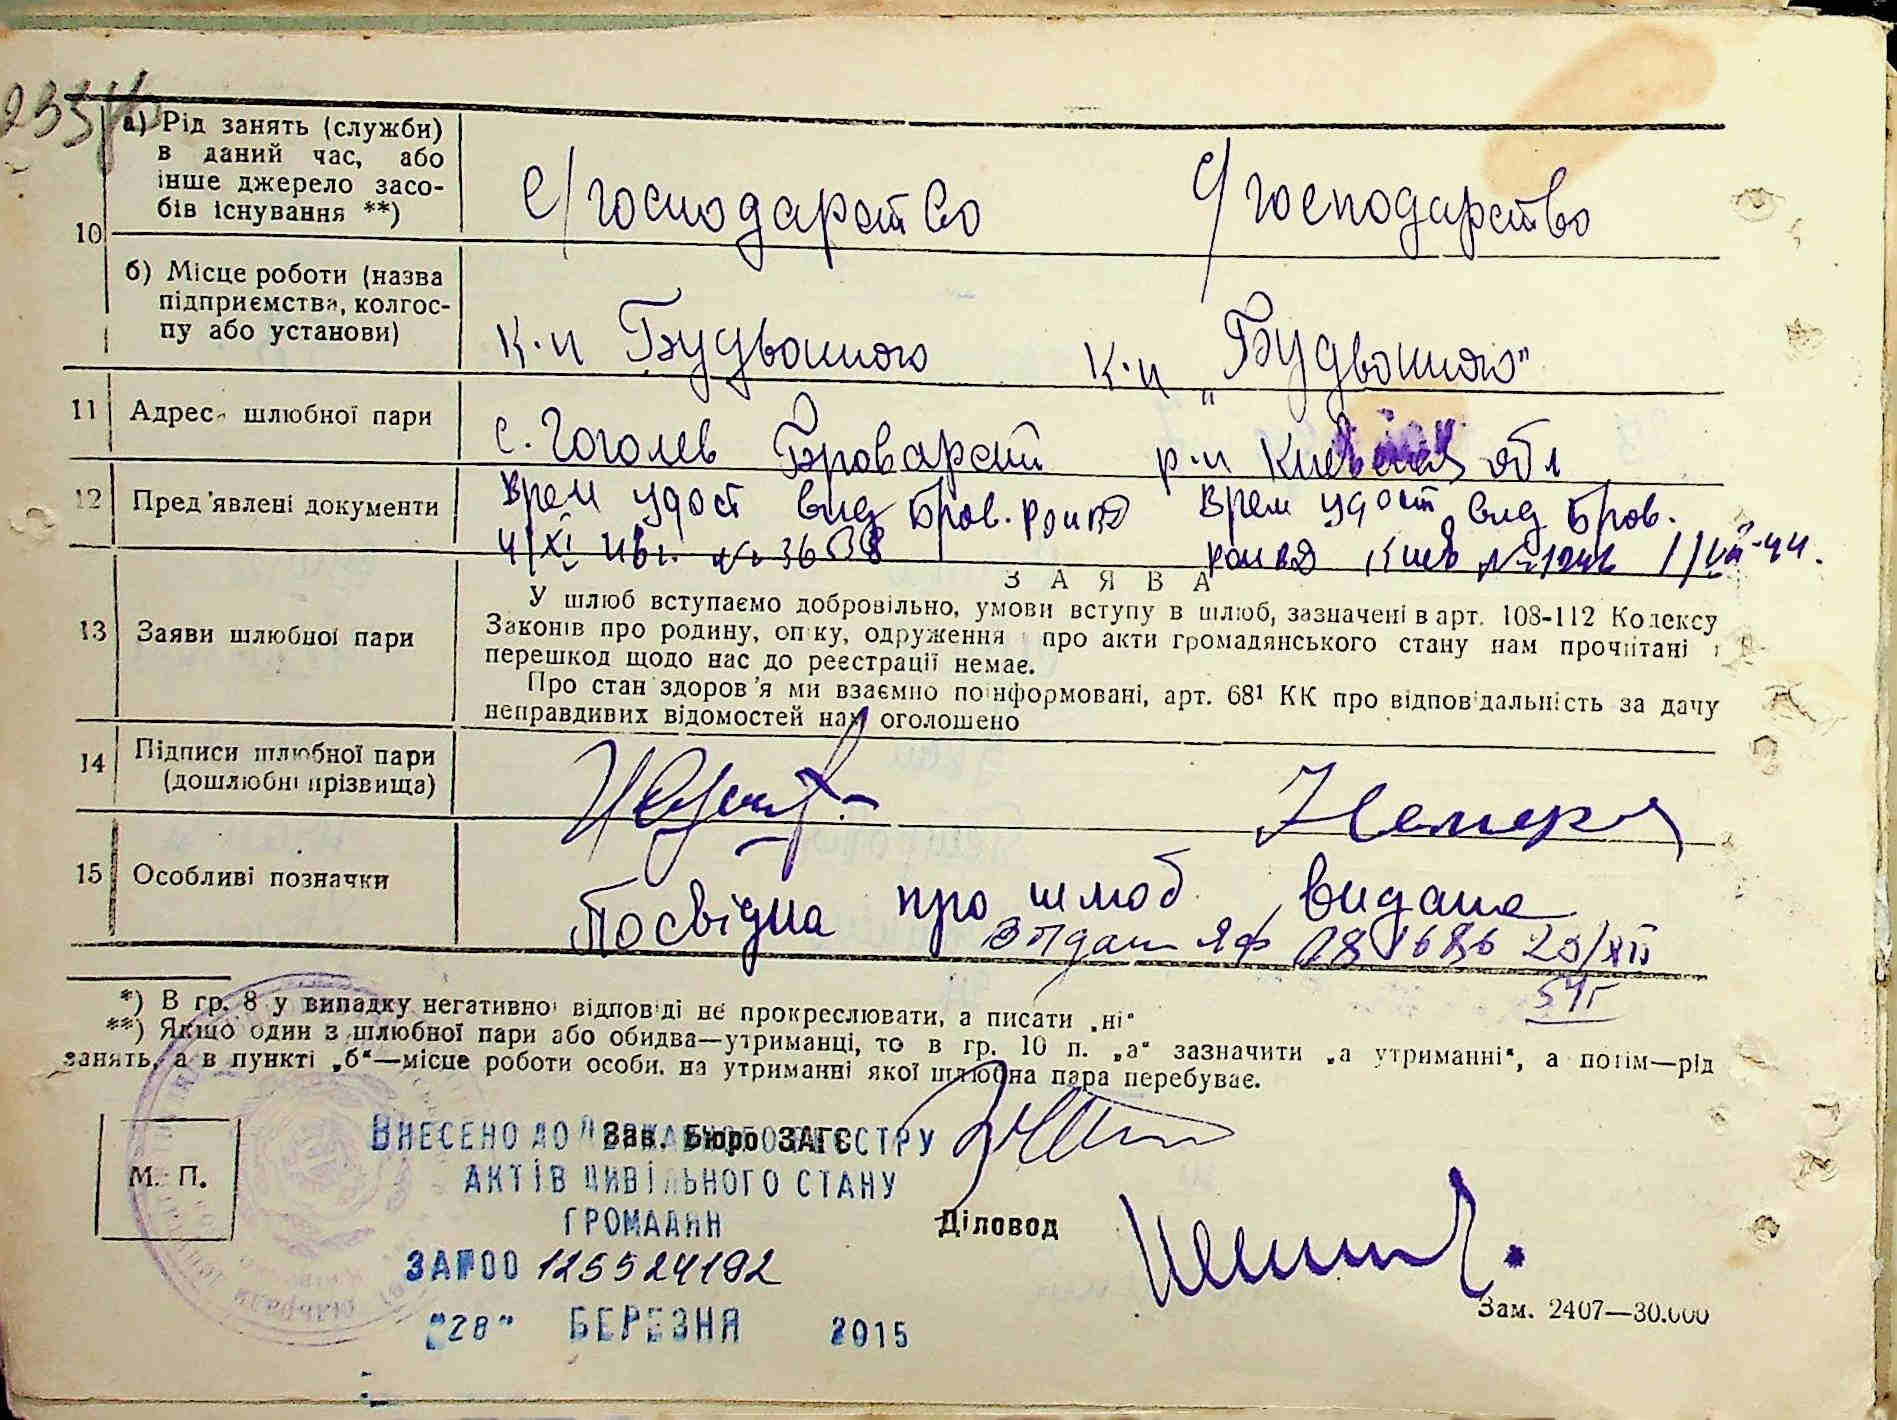 а) Рід занять (служби)
в даний час, або
інше джерело засо-
бів існування **)
10
с/господарство с/господарство
б) Місце роботи (назва
підприємства, колгос-
пу або установи)
к-п Будьоного к-п „Будьоного"
11 Адреса шлюбної пари
с. Гоголев Броварский р-н Киевская обл
12 Пред'явлені документи
Врем удост вид Бров. Врем удост вид Бров.
Киев
З А Я В А
13 Заяви шлюбної пари
У шлюб вступаємо добровільно, умови вступу в шлюб, зазначені в арт. 108-112 Кодексу
Законів про родину, опіку, одруження і про акти громадянського стану нам прочитані і
перешкод щодо нас до реєстрації немає.
Про стан здоров'я ми взаємно поінформовані, арт. 68¹ КК про відповідальність за дачу
неправдивих відомостей нам оголошено
14 Підписи шлюбної пари
(дошлюбні прізвища)
15 Особливі позначки
Посвідка про шлюб видана
20/XII
51г
*) В гр. 8 у випадку негативної відповіді не прокреслювати, а писати „ні"
**) Якщо один з шлюбної пари або обидва—утриманці, то в гр. 10 п. „а" зазначити „а утриманні", а потім—рід
занять, а в пункті „б"—місце роботи особи, на утриманні якої шлюбна пара перебуває.
М. П.
Зав. Бюро ЗАГС
ВНЕСЕНО ДО ДЕРЖАВНОГО РЕЄСТРУ
АКТІВ ЦИВІЛЬНОГО СТАНУ
ГРОМАДЯН
Діловод
ЗА №00 125524192
"28" БЕРЕЗНЯ 2015
Зам. 2407—30.000